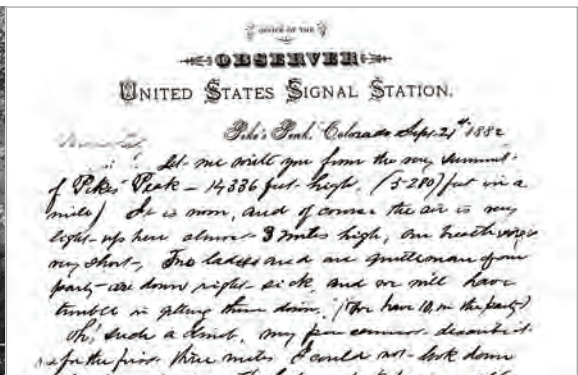 OFFICE OF THE
OBSERVER
UNITED STATES SIGNAL STATION.
Pike's Peak, Colorado Sept. 21st 1882
Let me write you from the very summit
of Pikes' Peak – 14336 feet high. (5280) feet in a
mile) It is noon, and of course the air is very
light up here almost 3 miles high, our breath very is
very short, Two ladies and one gentleman of our
party are down right sick, and we will have
trouble in getting them down. (We have 10, in the party)
Oh! such a climb, my pen cannot describe it.
for the first three miles I could not look down